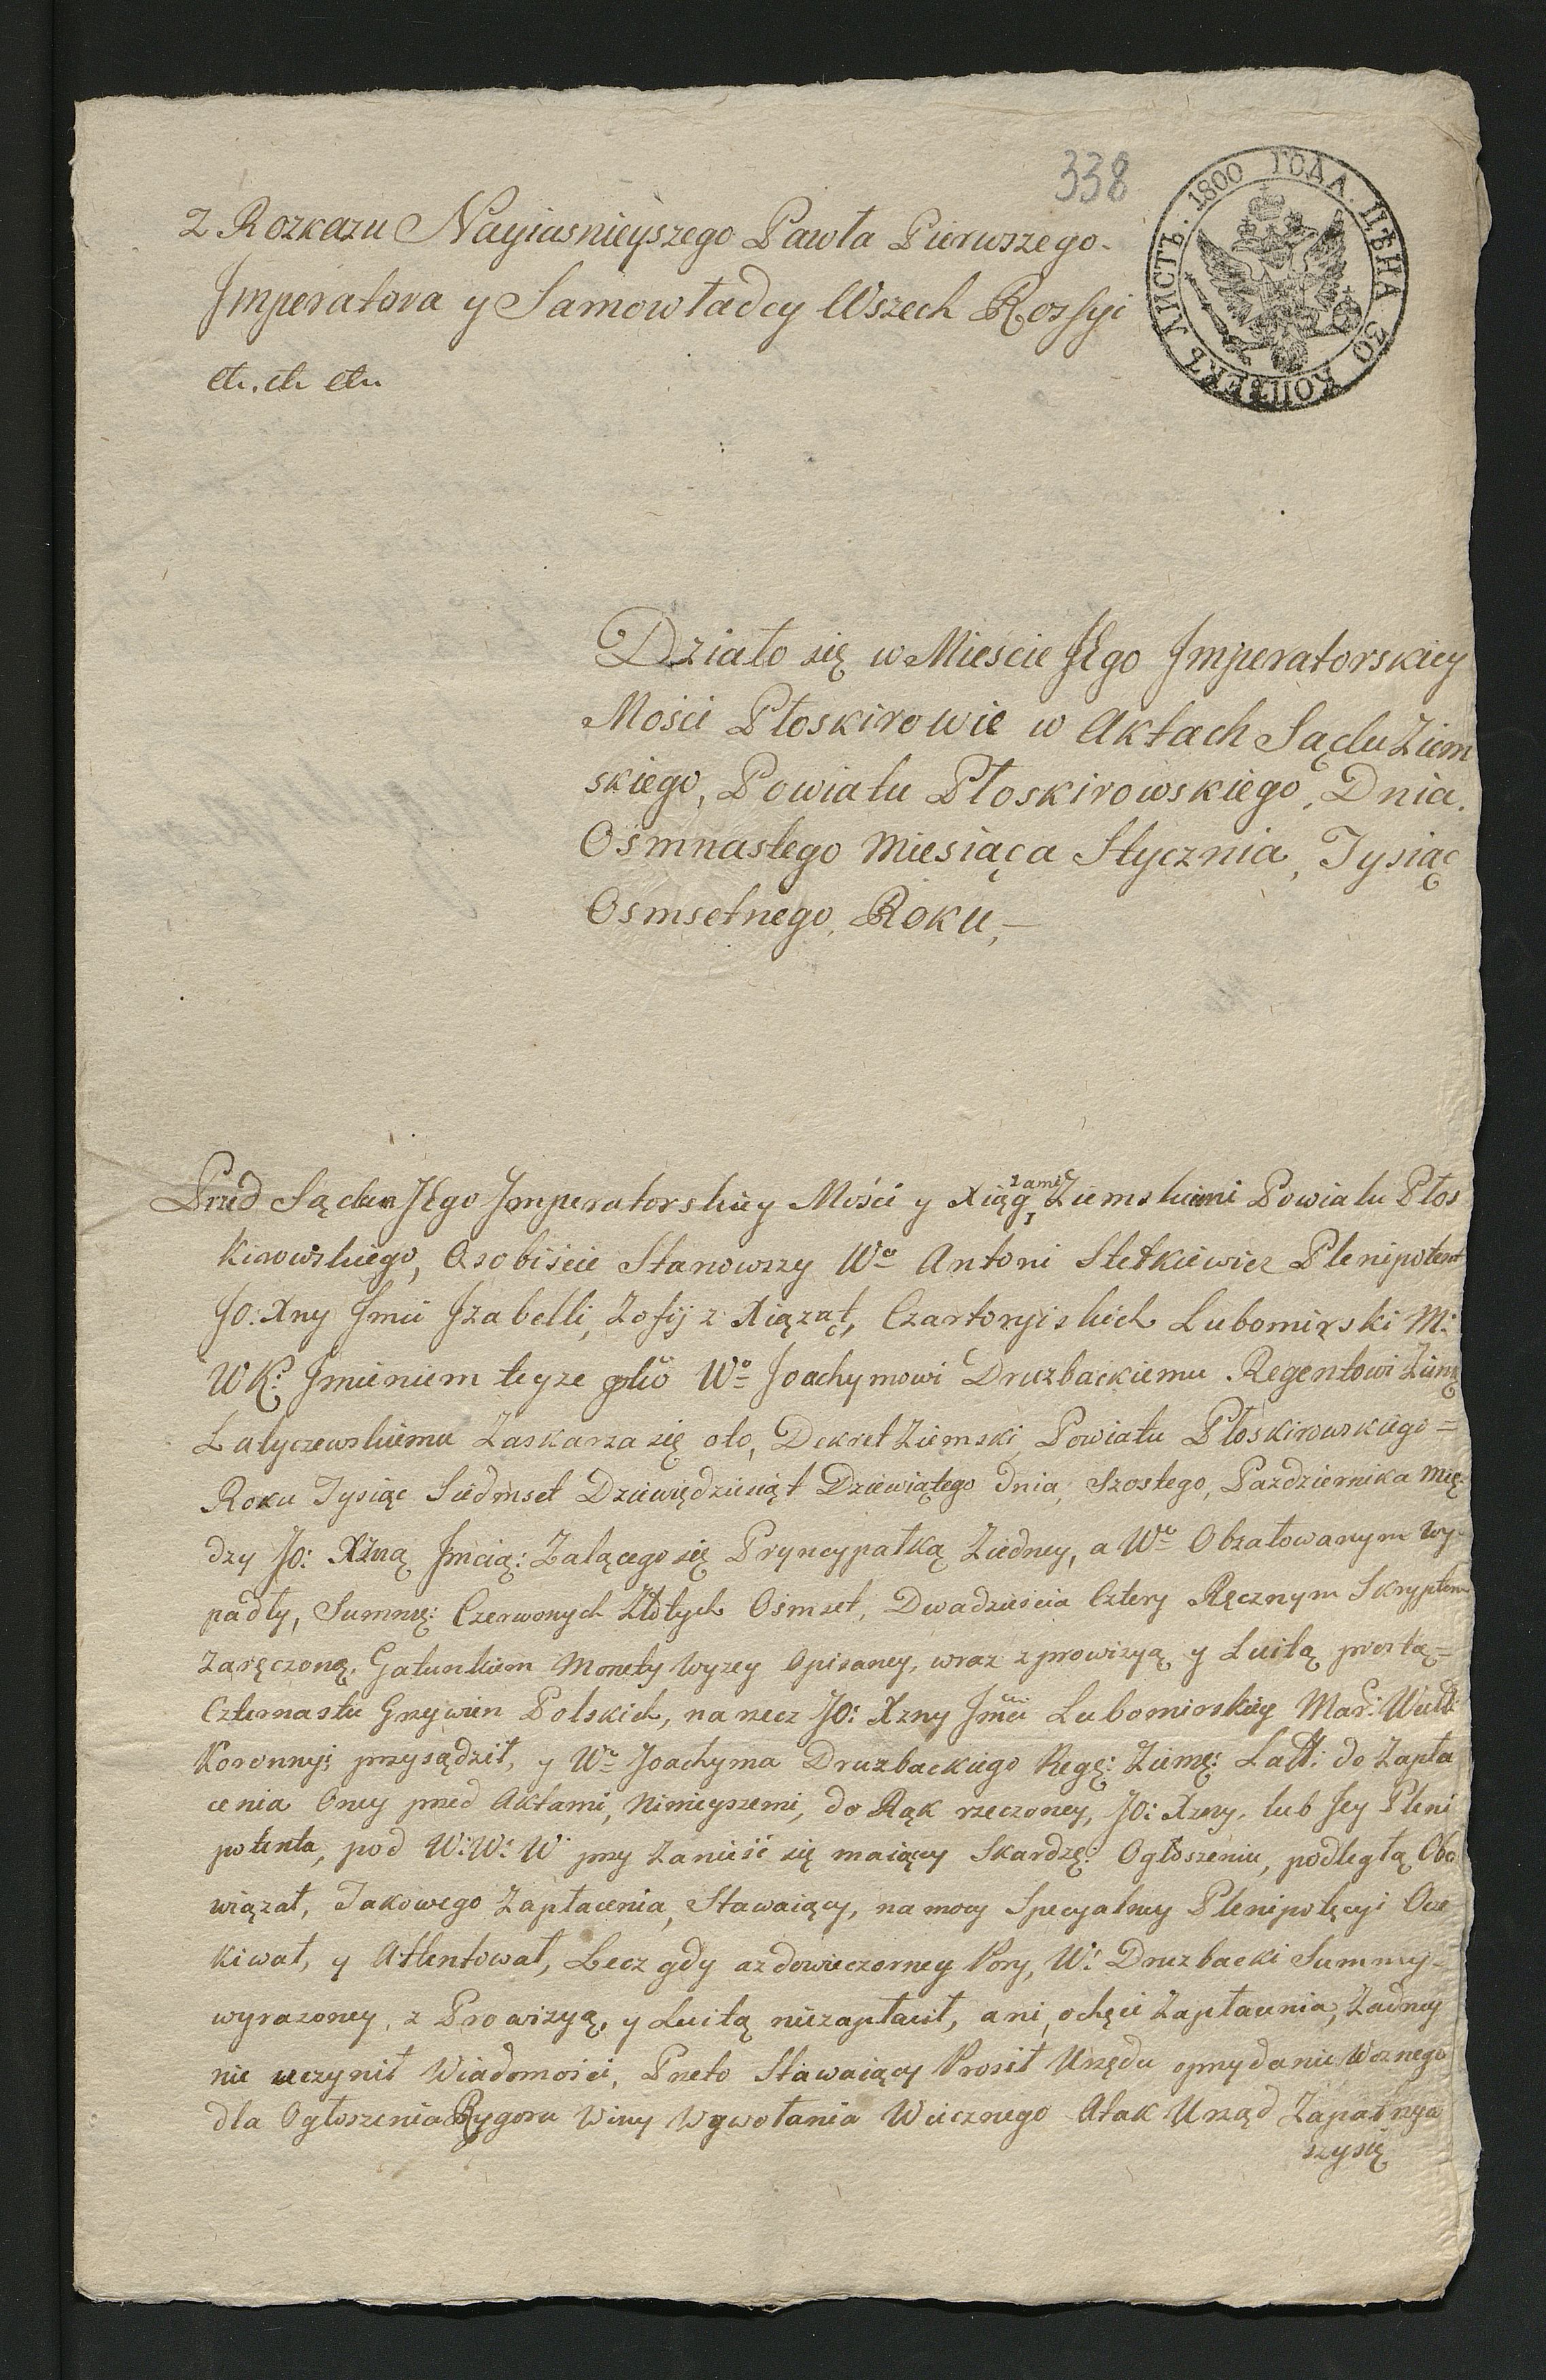 338
1800 ГОДА. ЦѢНА 30 КОПѢЕКЪ ЛИСТЪ.
Z Rozkazu Nayiasnieyszego Pawła Pierwszego
Imperatora y Samowładcy Wszech Rossyi
etc. etc etc.
Działo się w Miescie JEgo Imperatorskiey
Mości Płoskirowie w Aktach Sądu Ziem
skiego, Powiatu Płoskirowskiego, Dnia
Osmnastego Miesiąca Stycznia, Tysiąc
Osmsetnego Roku,—
Przed Sądem JEgo Imperatorskiey Mości y Xięgzami Ziemskiemi Powiatu Płos
kirowskiego, Osobiście Stanowszy Wo Antoni Stetkiewicz Plenipotent
JO: Xny Jmci Izabelli, Zofij z Xiążąt, Czartoryiskich Lubomirski M:
WK: Jmieniem teyze Wo Joachymowi Druzbackiemu Regentowi Ziem:
Latyczewskiemu Zaskarza się oto, Dekret Ziemski Powiatu Płoskirowskiego =
Roku Tysiąc Siedmset Dziewiędziesiąt Dziewiątego dnia, Szostego, Pazdziernika mię
dzy JO: Xżną Jmcią: Żalącego się Pryncypałką Ziedney, a Wo Obżałowanym wy-
padły, Summę: Czerwonych Złotych Osmset, Dwadzieścia Cztery Ręcznym Skryptem
Zaręczoną, Gatunkiem Monety wyzey Opisaney, wraz z prowizyą y Luitą prostą =
Czternastu Grzywien Polskich, na rzecz JO: Xzny Jmci Lubomirskiey Mar: Wielk:
Koronney: przysądził, y Wo Joachyma Druzbackiego Regę: Ziemę: Latt: do Zapła
cenia Oney przed Aktami, Ninieyszemi, do Rąk rzeczoney, JO: Xzney, lub Jey Pleni
potenta, pod W: W: W: przy Zanieść się maiący Skardzę: Ogłoszeniu, podległą Obo
wiązał, Takowego Zapłacenia, Stawaiący, na mocy Specyalney Plenipotęcyi Ocze
kiwał, y Attentował, Lecz gdy az dowieczorney Pory, W: Druzbacki Summy-
wyrazoney, z Prowizyą, y Luitą niezapłacił, ani, ochęci Zapłacenia, Zadney
nie uczynił Wiadomości, Przeto Stawaiący Prosił Urzędu oprzydanie Woznego
dla Ogłoszenia Rygoru Winy Wywołania Wiecznego Atak Urząd Zapatrzyw
szy się